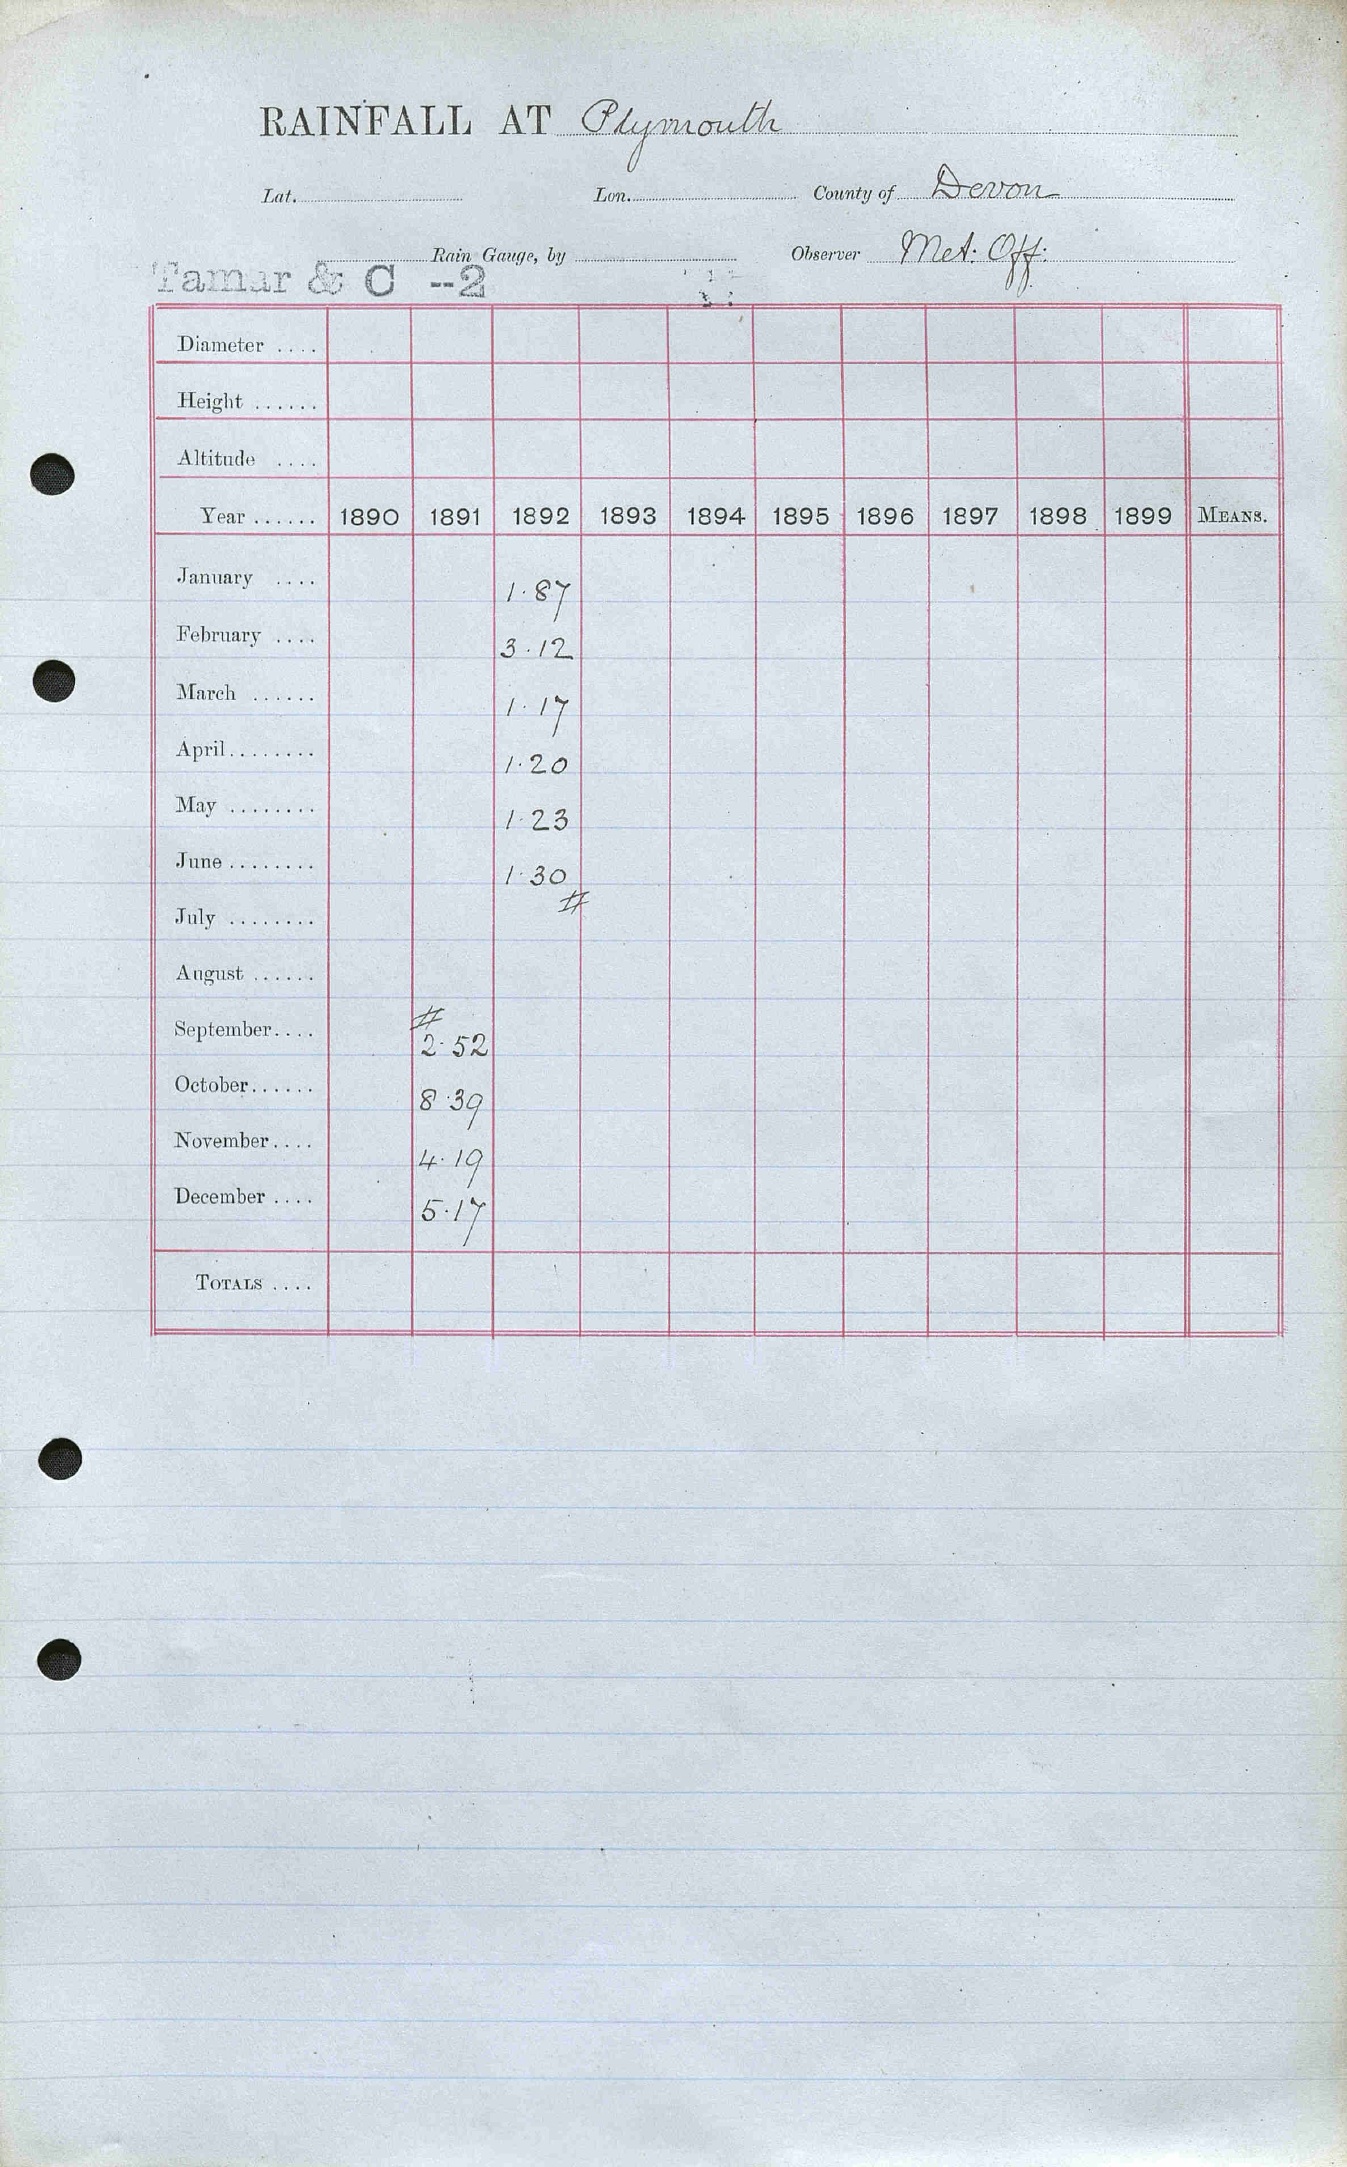 RAINFALL AT Plymouth
Lat. Lon. County of Devon
Rain Gauge, by Observer Met. Off.
Tamar & C --2
Diameter ....
Height ......
Altitude ....
Year ...... 1890 1891 1892 1893 1894 1895 1896 1897 1898 1899 MEANS.
January .... 1.87
February .... 3.12
March ...... 1.17
April........ 1.20
May ........ 1.23
June ........ 1.30
#
July ........
August ......
#
September.... 2.52
October...... 8.39
November.... 4.19
December .... 5.17
TOTALS ....